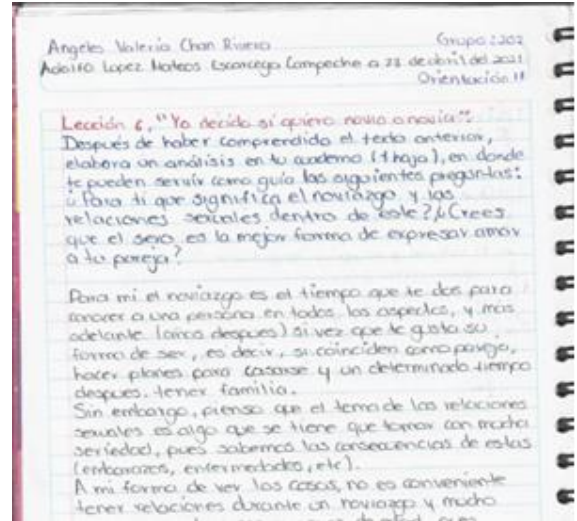 Angeles Valeria Chan Rivero Grupo: 202
Adolfo Lopez Mateos Escarcega Campeche a 23 de abril del 2021
Orientación II
Lección 6, "Yo decido si quiero novio o novia".
Después de haber comprendido el texto anterior,
elabora un análisis en tu cuaderno (1 hoja), en donde
te pueden servir como guía las siguientes preguntas:
¿Para ti que significa el noviazgo y las
relaciones sexuales dentro de este? ¿Crees
que el sexo es la mejor forma de expresar amor
a tu pareja?
Para mi el noviazgo es el tiempo que te das para
conocer a una persona en todos los aspectos, y mas
adelante (años despues) si vez que te gusta su
forma de ser, es decir, si coinciden como pareja,
hacer planes para casarse y un determinado tiempo
despues, tener familia.
Sin embargo, pienso que el tema de las relaciones
sexuales es algo que se tiene que tomar con mucha
seriedad, pues sabemos las consecuencias de estas
(embarazos, enfermedades, etc).
A mi forma de ver las cosas, no es conveniente
tener relaciones durante un noviazgo y mucho